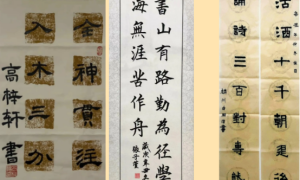 沽酒十千朝走
誦詩三百對專
書山有路勤為徑學
海無涯苦作舟
全神貫注
入木三分
高梓轩書